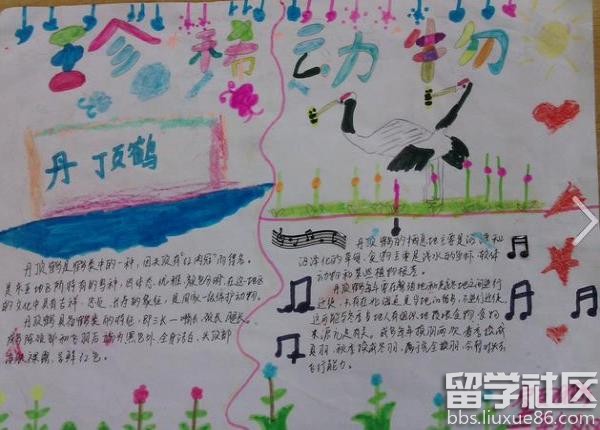 珍稀动物
丹顶鹤
丹顶鹤是鹤类中的一种，因头顶有"红肉冠"而得名。
是东亚地区所特有的鸟种，因体态优雅、颜色分明，在这一地区
的文化中具有吉祥、忠贞、长寿的象征，是国家一级保护动物。
丹顶鹤具备鹤类的特征，即三长—嘴长、颈长、腿长。
成鸟除颈部和飞羽后端为黑色外，全身洁白，头顶部
皮肤裸露，呈鲜红色。
丹顶鹤的栖息地主要是沼泽和
沼泽化的草甸，食物主要是浅水的鱼虾、软体
动物和某些植物根茎。
丹顶鹤每年要在繁殖地和越冬地之间进行
迁徙，只有在
来源
成鸟每年换羽两次，春季换成
夏羽，秋季换成冬羽，属于完全换羽，会暂时失去
飞行能力。
留学社区
bbs.liuxue86.com